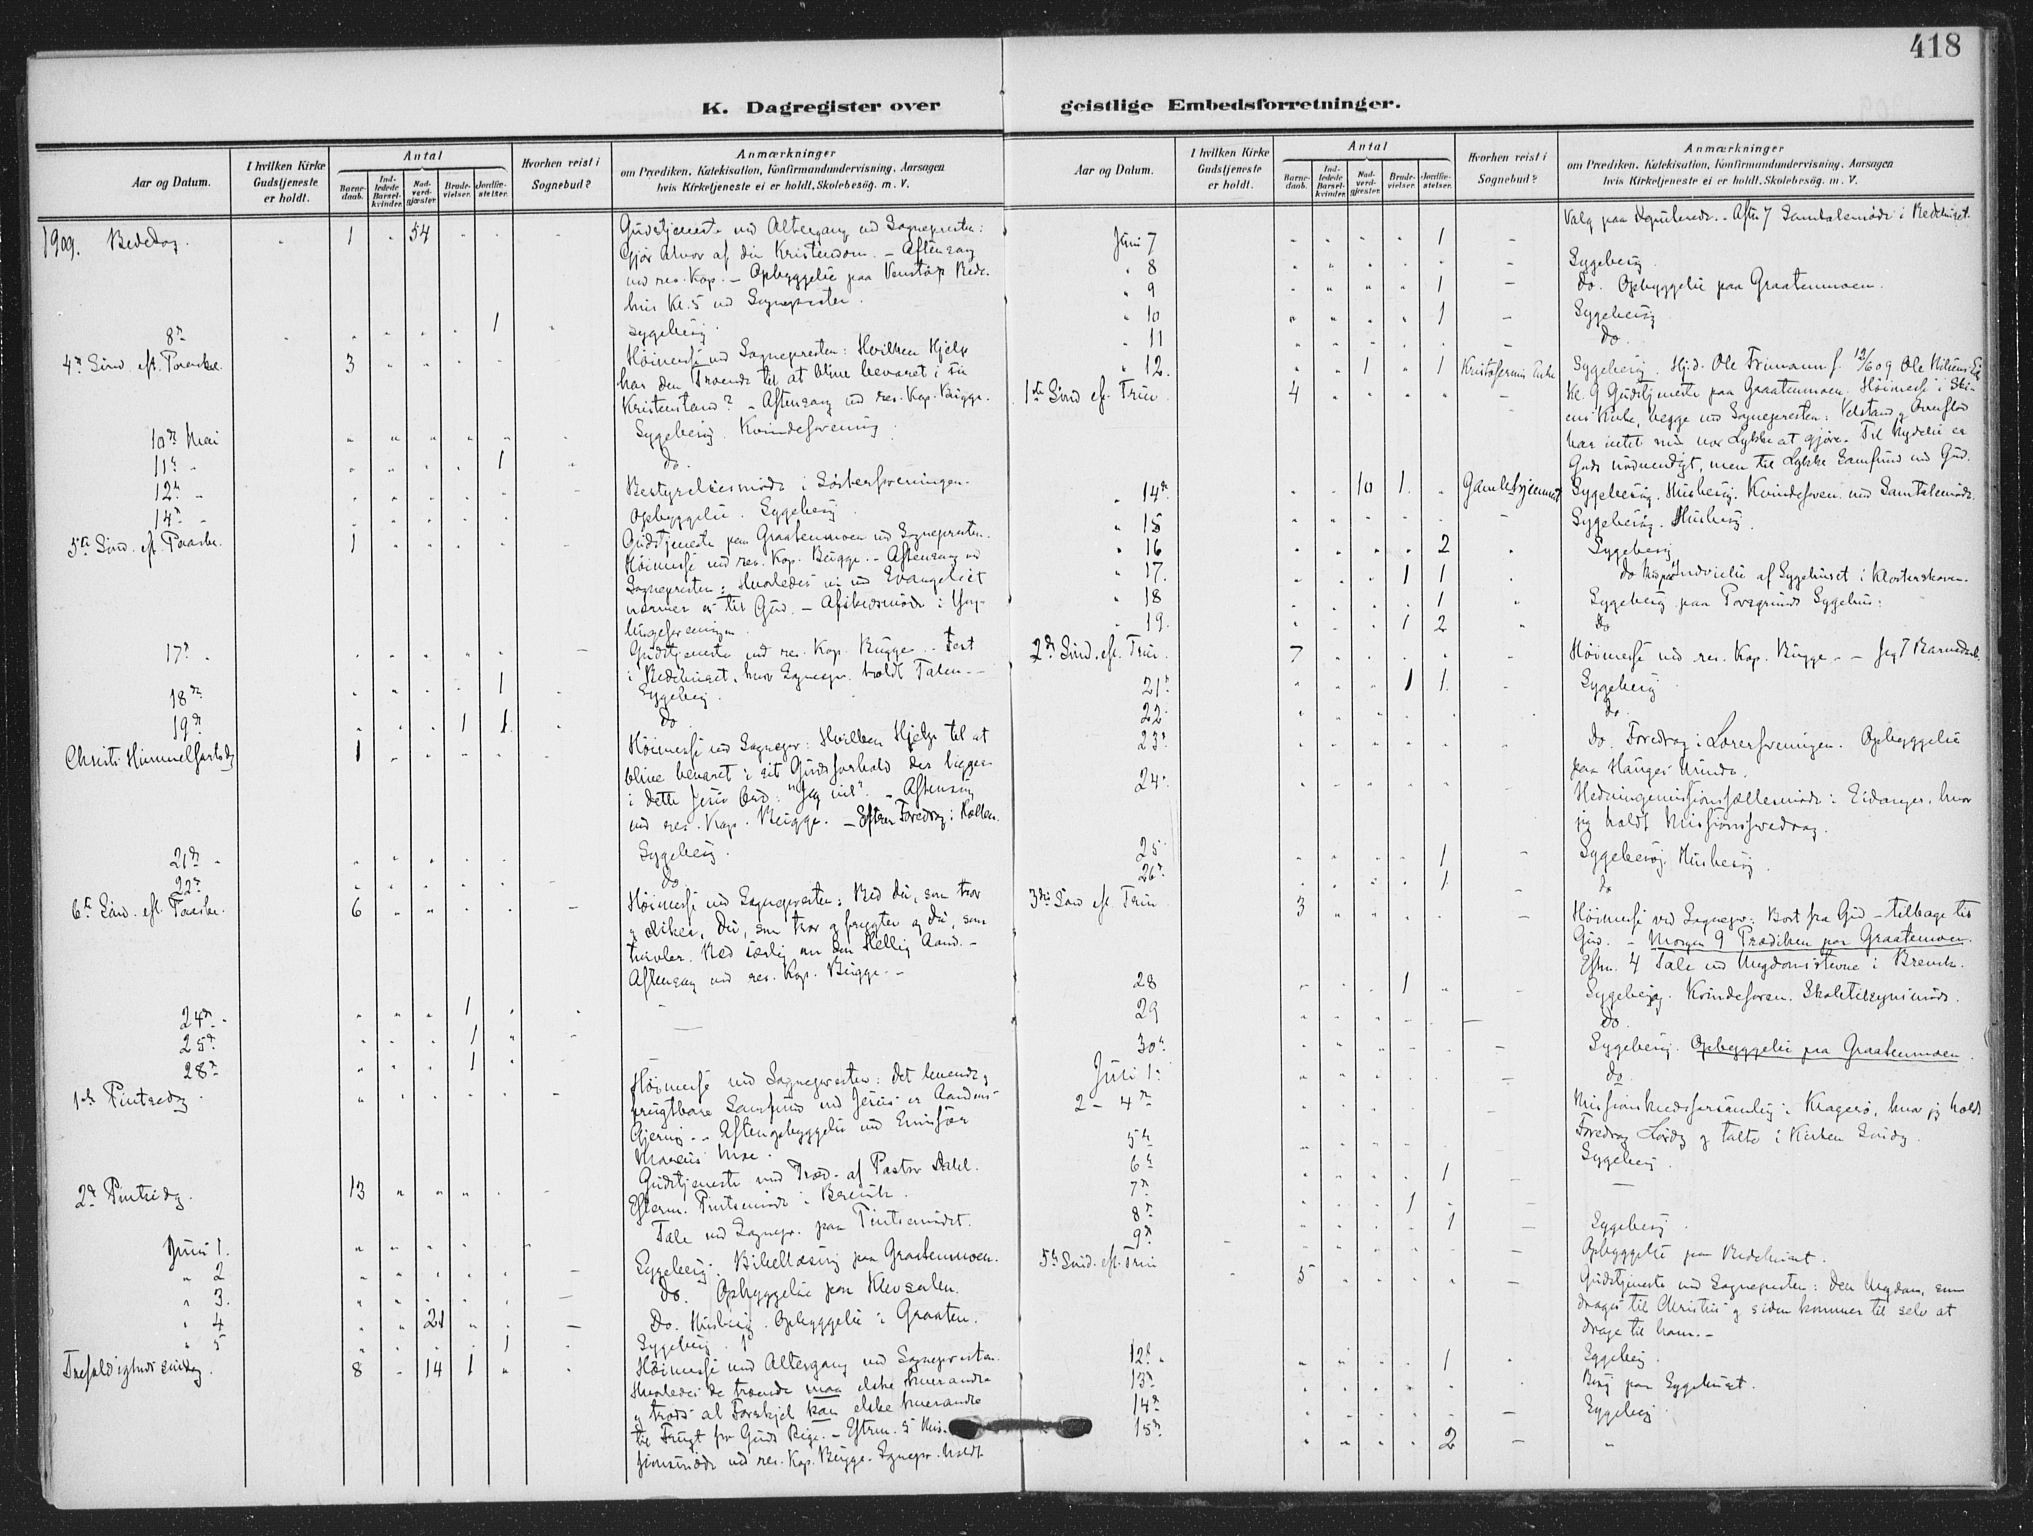 418
K. Dagregister over
geistlige Embedsforretninger.
Aar og Datum.
I hvilken Kirke Gudstjeneste er holdt.
Antal
Barnedaab.
Indledede Barselkvinder.
Nadverdgjæster.
Brudevielser.
Jordfæstelser.
Hvorhen reist i Sognebud?
Anmærkninger
om Prædiken, Katekisation, Konfirmandundervisning, Aarsagen
hvis Kirketjeneste ei er holdt, Skolebesøg. m. V.
1909. Bededag. 1 54 Gudstjeneste med Altergang ved Sognepresten:
Gjør Alvor af din Kristendom. – Aftensang
ved res. Kap. – Opbyggelse paa Venstøp Bede-
hus Kl. 5 ved Sognepresten.
8de 1 Sygebesøg.
4de Sønd. eft. Paaske. 3 Høimesse ved Sognepresten: Hvilken Hjelp
har den Troende til at blive bevaret i sin
Kristenstand? – Aftensang ved res. Kap. Bugge.
10de Mai Sygebesøg. Kvindeforening
11te 1 do.
12te Bestyrelsesmøde i Søsterforeningen.
14de Opbyggelse. Sygebesøg
5te Sønd. ef. Paaske. 1 Gudstjeneste paa Graatenmoen ved Sognepresten.
Høimesse ved res. Kap. Bugge. – Aftensang ved
Sognepresten: Hvorledes vi ved Evangeliet
nærmer os til Gud. – Afskedsmøde i Yng-
lingeforeningen.
17de Gudstjeneste ved res. Kap. Bugge. – Fest
i Bedehuset, hvor Sognepr. holdt Talen. –
18de 1 Sygebesøg.
19de 1 1 do.
Christi Himmelfartsdg 1 Høimesse ved Sognepr: Hvilken Hjelp til at
blive bevaret i sit Gudsforhold der ligger
i dette Jesu Ord: "Jeg vil". – Aftensang
ved res. Kap. Bugge. – Efterm Foredrag i
21de Sygebesøg.
22de do
6te Sønd. ef. Paaske. 6 Høimesse ved Sognepresten: Bed du, som tror
og elsker, Du, som tror og frygter og du, som
tvivler. Bed særlig om den Hellig Aand. –
Aftensang ved res. Kap. Bugge. –
24de 1
25de 1
28de 1
1ste Pintsedag. Høimesse ved Sognepresten: Det levende og
frugtbare Samfund med Jesus er Aandens
Gjerning. – Aftenopbyggelse ved Emissær
2den Pintsedg. 13 Gudstjeneste med Præd. af Pastor Dahl.
Efterm. Pintsemøde i Brevik.
Tale ved Sognepr. paa Pintsemødet.
Juni 1. Sygebesøg. Bibellæsning paa Graatenmoen.
" 2 do. Opbyggelse paa Klevsalen.
" 3. Do. Husbesøg. Opbyggelse i Graaten.
" 4 21 Sygebesøg.
" 5 1
Trefoldighedssøndag. 8 14 1 Høimesse med Altergang ved Sognepresten.
Hvorledes de troende maa elske hverandre
og trods al Forskjel kan elske hverandre
til Frugt for Guds Rige. – Efterm. 5 Mis-
sionsmøde ved res. Kap. Bugge. Sognepr. holdt
Aar og Datum.
I hvilken Kirke Gudstjeneste er holdt.
Antal
Barnedaab.
Indledede Barselkvinder.
Nadverdgjæster.
Brudevielser.
Jordfæstelser.
Hvorhen reist i Sognebud?
Anmærkninger
om Prædiken, Katekisation, Konfirmandundervisning, Aarsagen
hvis Kirketjeneste ei er holdt, Skolebesøg. m. V.
Valg paa Deputerede. – Aften 7 Samtalemøde i Bedehuset.
Juni 7 1
" 8 Sygebesøg.
" 9 1 do. Opbyggelse paa Graatenmoen.
" 10 1 Sygebesøg
" 11 do.
" 12. 1 1 Sygebesøg. Hjd. Ole 12/6 09 Ole
1ste Sønd ef. Trin. 4 Kl. 9 Gudstjeneste paa Graatenmoen. Høimesse i Ski-
ens Kirke, begge ved Sognepresten: Velstand og Overflod
har intet med vor Lykke at gjøre. Til Nydelse er
Gods nødvendigt, men til Lykke Samfund med Gud.
" 14de 10 1. Gamlehjemmet Sygebesøg. Husbesøg. Kvindeforen. med Samtalemøde.
" 15 Sygebesøg. Husbesøg.
" 16 2 Sygebesøg
" 17. 1 1 do Indvielse af Sygehuset i Klosterskoven.
" 18 1 Sygebesøg paa Porsgrunds Sygehus.
" 19. 1 2 do
2den Sønd. ef. Trin. 7 Høimesse ved res. Kap. Bugge. – Jeg 7 Barnedaab.
21de 1 1. Sygebesøg
22 do.
23de do. Foredrag i Lærerforeningen. Opbyggelse
paa Hauges Minde.
24de Hedningemissionsfællesmøde i Eidanger, hvor
jeg holdt Missionsforedrag.
25 1 Sygebesøg. Husbesøg
26de 1 do
3die Sønd ef Trin 3 Høimesse ved Sognepr: Bort fra Gud – tilbage til
Gud. – Morgen 9 Prædiken paa Graatenmoen.
Eftm. 4 Tale ved Ungdomsstevne i Brevik.
28 1 Sygebesøg. Kvindeforen. Skoletilsynsmøde.
29 do.
30te Sygebesøg. Opbyggelse paa Graatenmoen.
Juli 1. do
2 – 4de Missionskredsforsamling i Kragerø, hvor jeg holdt
Foredrag Lørdg og talte i Kirken Søndg.
5te Sygebesøg.
6te 1
7de 1
8de 1 Sygebesøg.
9de Opbyggelse paa Bedehuset.
5te Sønd. ef. Trin 5 Gudstjeneste ved Sognepresten: Den Ungdom, som
drages til Christus og siden kommer til selv at
drage til ham. –
12te 1 Sygebesøg.
13de Besøg paa Sygehuset.
14de Sygebesøg
15de 2 "